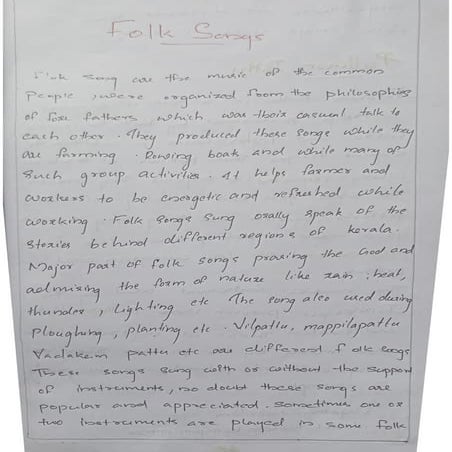 Folk Songs
Folk song are the music of the common
people, were organized from the philosophies
of fore fathers which was their casual talk to
each other. They produced these songs while they
are farming. Rowing boat and while many of
such group activities. It helps farmer and
workers to be energetic and refreshed while
working. Folk songs sung orally speak of the
stories behind different regions of kerala.
Major part of folk songs praising the God and
admising the form of nature like rain, heat,
thunder, lighting etc The song also used during
ploughing, planting etc. Vilpattu, mappilapattu
Vadakem pattu etc are different folk songs
These songs sung with or without the support
of instruments, no doubt these songs are
popular and appreciated. sometimes one or
two instruments are played in some folk